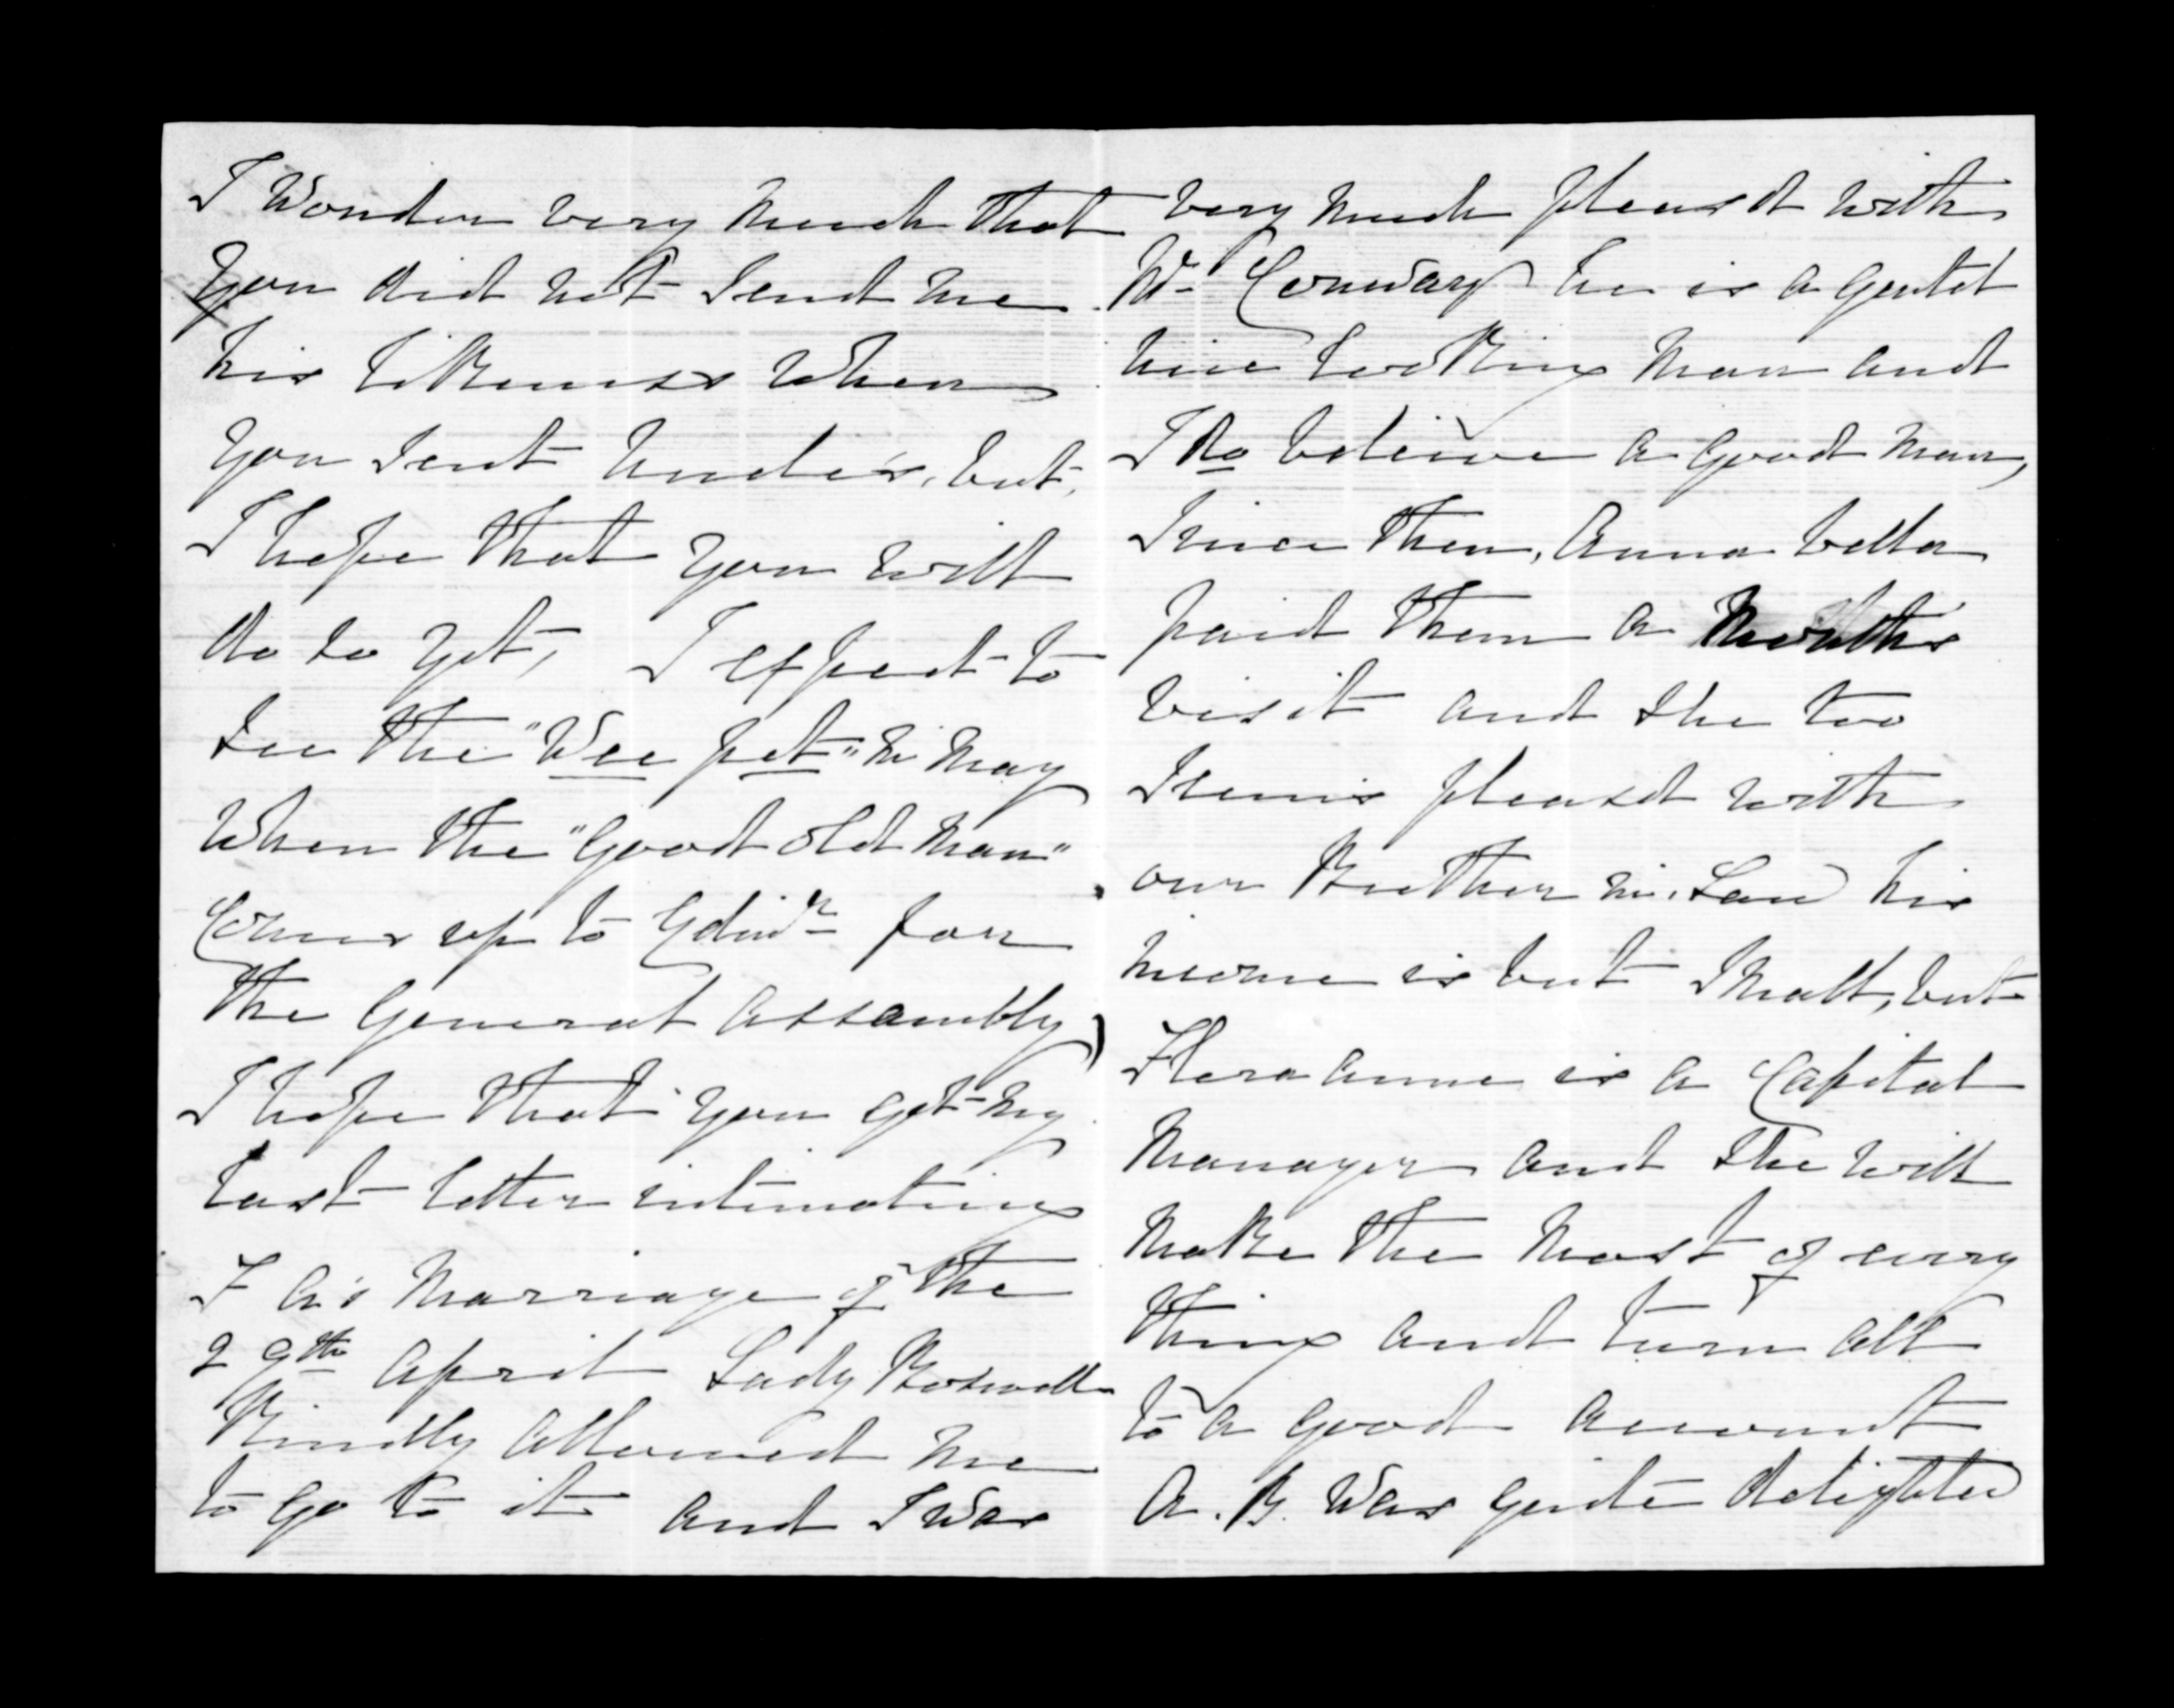 I Wonder very much that
you did not send me
his likeness when
you sent Uncle's, but,
I hope that you will
do so yet, I expect to
see the "Wee pet" in May
when the "Good old Man"
Comes up to Edinr for
the General Assembly,
I hope that you got my
last letter intimating
F A's Marriage of the
29th April Lady Boswell
Kindly allowed me
to go to it and I was
very much pleasd with
Mr Conway he is a gentel
nice looking Man and
I do beleive a good man,
Since then, Anna bella
paid them a Month's
visit and she too
Seems pleasd with
our Brother in. Law his
income is but Small, but
Flora anne is a Capital
Manager and she will
make the most of every
thing and turn all
to a good account
A. B. Was quite delighted